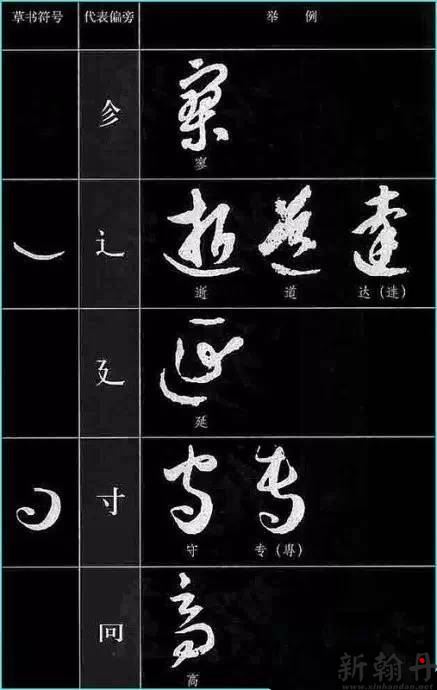 草书符号 代表偏旁 举 例
㐱
寥
辶
逝 道 达(達)
廴
延
寸
守 专(專)
冋
高
新翰丹
www.xinhandan.net